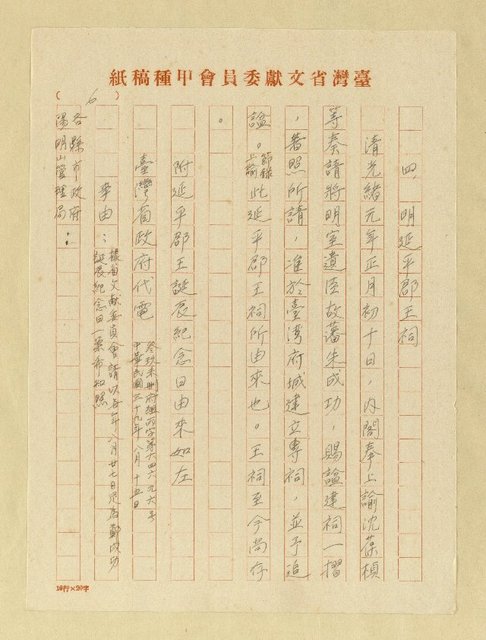 臺灣省文獻委員會甲種稿紙
( 6 )
四、明延平郡王祠
清光緒元年正月初十日，內閣奉上諭沈葆楨
等奏請將明室遺臣故藩朱成功，賜謚建祠一摺
，著照所請，准於臺灣府城建立專祠，並予追
謚。節錄上諭此延平郡王祠所由來也。王祠至今尚存
。
附延平郡王誕辰紀念日由來如左
臺灣省政府代電
中華民國三十九年八月十五日
事由：據省文獻委員會請以每年八月廿七日定為鄭成功
誕辰紀念日一案希知照
各縣市政府
陽明山管理局：